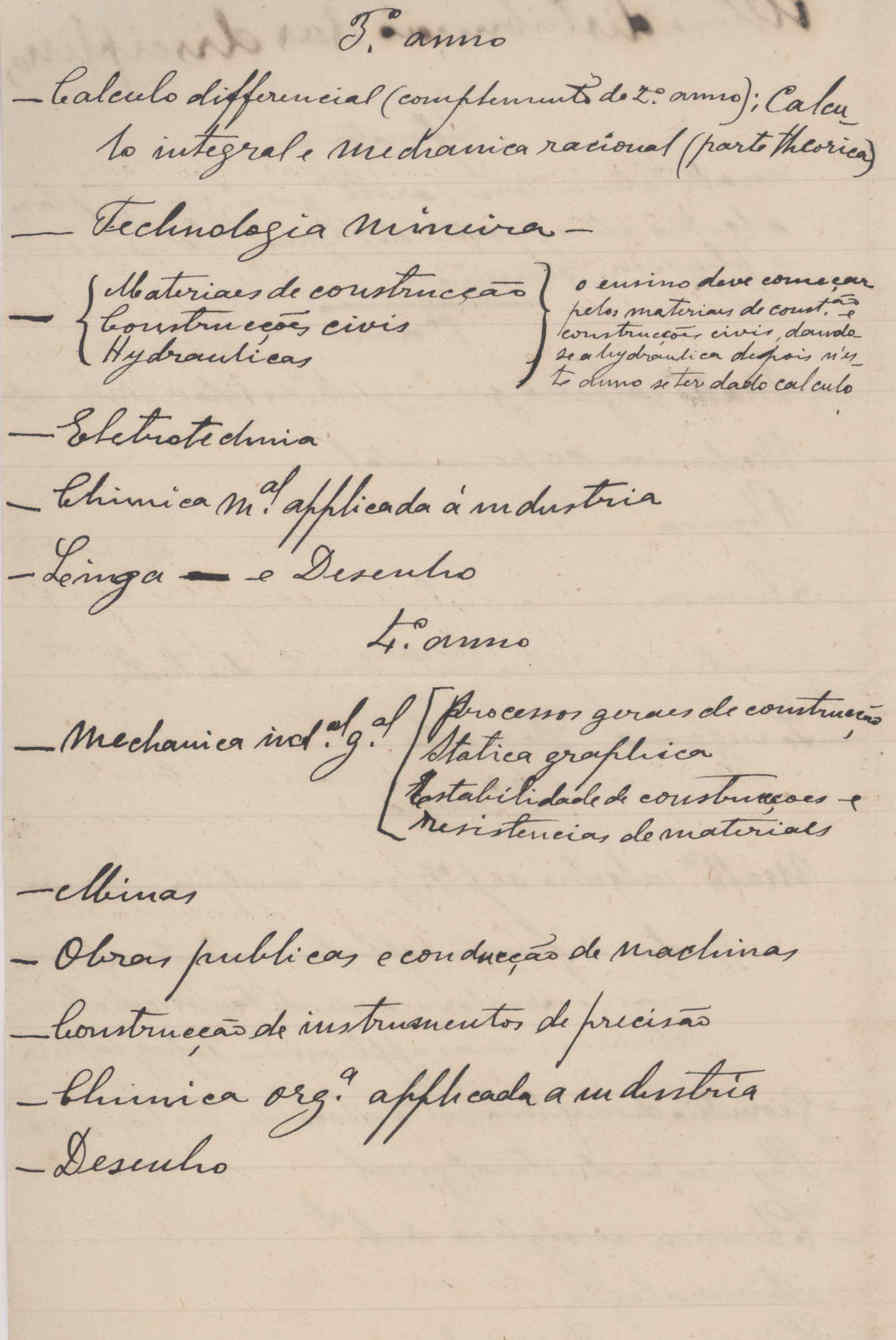 3.º anno
— Calculo differencial (complemento do 2.º anno); Calcu-
lo integral e mechanica racional (parte theorica)
— Technologia mineira —
— Materiaes de construcção
Construcções civis
Hydraulicas
o ensino deve começar
pelos materiaes de const.ão e
construcções civis, dando
se a hydraulica depois n'es-
te anno se ter dado calculo
— Eletrotechnia
— Chimica m.al applicada á industria
— Linga — e Desenho
4.º anno
— Mechanica ind.al g.al
Processos geraes de construcção
Statica graphica
Estabilidade de construcções e
resistencias de materiaes
— Minas
— Obras publicas e conducção de machinas
— Construcção de instrumentos de precisão
— Chimica org.a applicada a industria
— Desenho